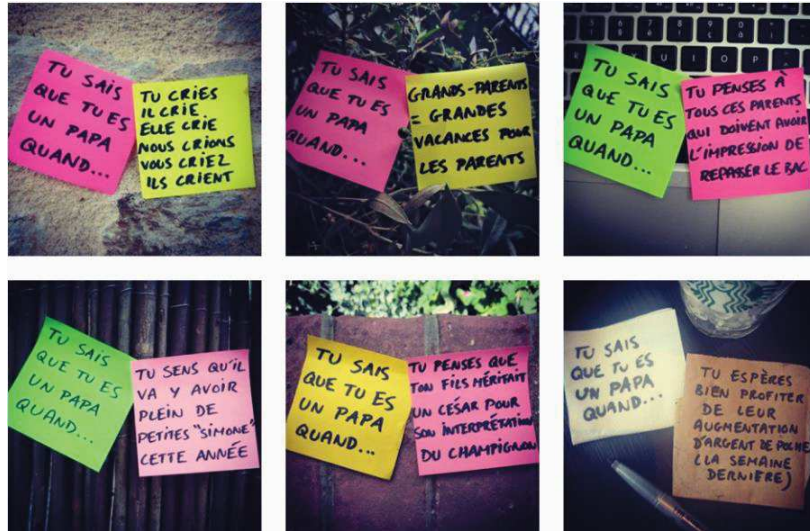 TU SAIS
QUE TU ES
UN PAPA
QUAND...
TU CRIES
IL CRIE
ELLE CRIE
NOUS CRIONS
VOUS CRIEZ
ILS CRIENT
TU SAIS
QUE TU ES
UN PAPA
QUAND...
GRANDS-PARENTS
= GRANDES
VACANCES POUR
LES PARENTS
TU SAIS
QUE TU ES
UN PAPA
QUAND...
TU PENSES À
TOUS CES PARENTS
QUI DOIVENT AVOIR
L'IMPRESSION DE
REPASSER LE BAC
TU SAIS
QUE TU ES
UN PAPA
QUAND...
TU SENS QU'IL
VA Y AVOIR
PLEIN DE
PETITES "SIMONE"
CETTE ANNÉE
TU SAIS
QUE TU ES
UN PAPA
QUAND...
TU PENSES QUE
TON FILS MÉRITAIT
UN CÉSAR POUR
SON INTERPRÉTATION
DU CHAMPIGNON
TU SAIS
QUE TU ES
UN PAPA
QUAND...
TU ESPÈRES
BIEN PROFITER
DE LEUR
AUGMENTATION
D'ARGENT DE POCHE
(LA SEMAINE
DERNIÈRE)